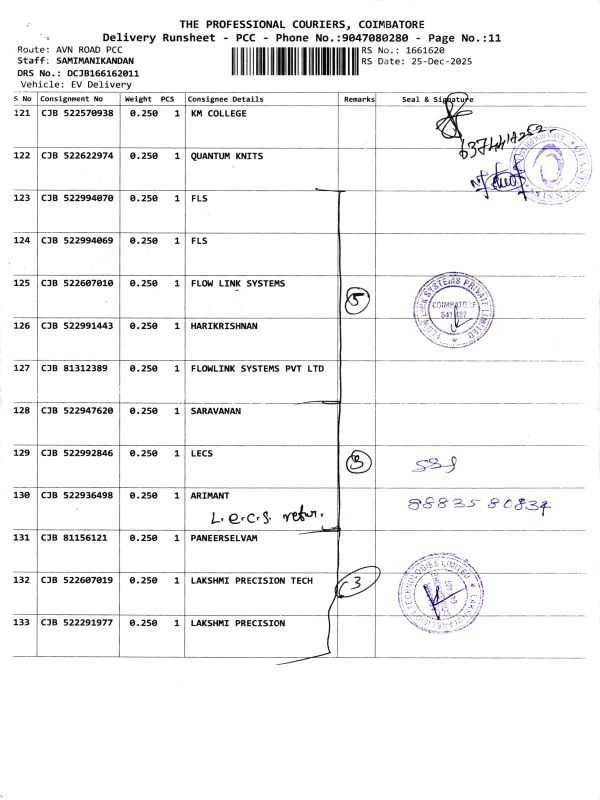 THE PROFESSIONAL COURIERS, COIMBATORE
Delivery Runsheet - PCC - Phone No.:9047080280 - Page No.:11
Route: AVN ROAD PCC RS No.: 1661620
Staff: SAMIMANIKANDAN RS Date: 25-Dec-2025
DRS No.: DCJB166162011
Vehicle: EV Delivery
S No Consignment No Weight PCS Consignee Details Remarks Seal & Signature
121 CJB 522570938 0.250 1 KM COLLEGE
122 CJB 522622974 0.250 1 QUANTUM KNITS
123 CJB 522994070 0.250 1 FLS
124 CJB 522994069 0.250 1 FLS
125 CJB 522607010 0.250 1 FLOW LINK SYSTEMS 5
FLOW LINK SYSTEMS PRIVATE LIMITED
COIMBATORE
126 CJB 522991443 0.250 1 HARIKRISHNAN
127 CJB 81312389 0.250 1 FLOWLINK SYSTEMS PVT LTD
128 CJB 522947620 0.250 1 SARAVANAN
129 CJB 522992846 0.250 1 LECS 3
130 CJB 522936498 0.250 1 ARIMANT 8883580834
L.e.c.s. retur.
131 CJB 81156121 0.250 1 PANEERSELVAM
132 CJB 522607019 0.250 1 LAKSHMI PRECISION TECH 3
TECHNOLOGIES LIMITED
133 CJB 522291977 0.250 1 LAKSHMI PRECISION